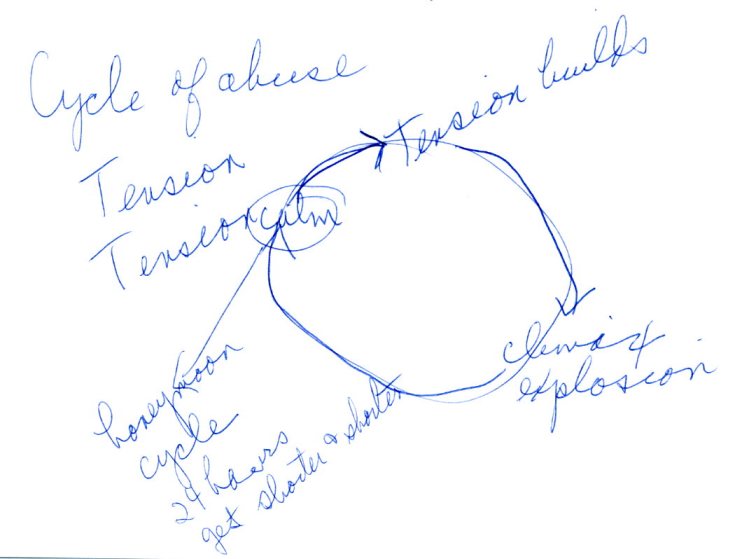 Cycle of abuse
Tension builds
Tension
Tension
calm
climax
explosion
honeymoon
cycle
24 hours
get shorter & shorter